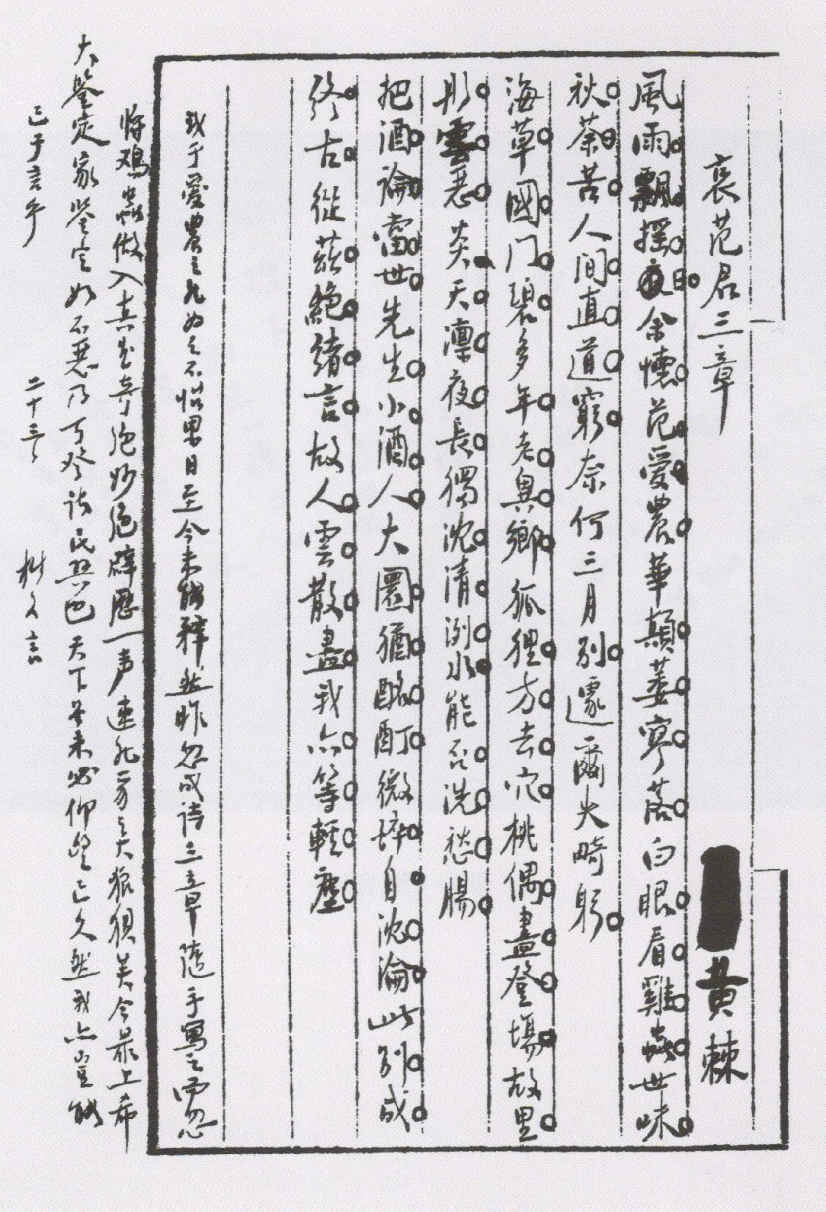 哀范君三章
黄棘
風雨飄摇日余懷范愛農華顛萎寥落白眼看雞蟲世味
秋荼苦人間直道窮奈何三月别遽尔失畸躬
海草國门碧多年老異鄉狐狸方去穴桃偶盡登場故里
彤雲惡炎天凜夜長獨沈清洌水能否洗愁腸
把酒論當世先生小酒人大圜猶酩酊微醉自沈淪此别成
終古從茲絶緒言故人雲散盡我亦等輕塵
我于愛農之死為之不怡累日至今未能釋然昨忽成詩三章隨手寫之而忽
將鷄虫做入真是奇絶妙絶辟歷一声速死豸之大狼狽矣今录上希
大鉴定家鉴定如不惡乃可登諸民興也天下虽未必仰望已久然我亦豈能
已于言乎 二十三日 樹又言